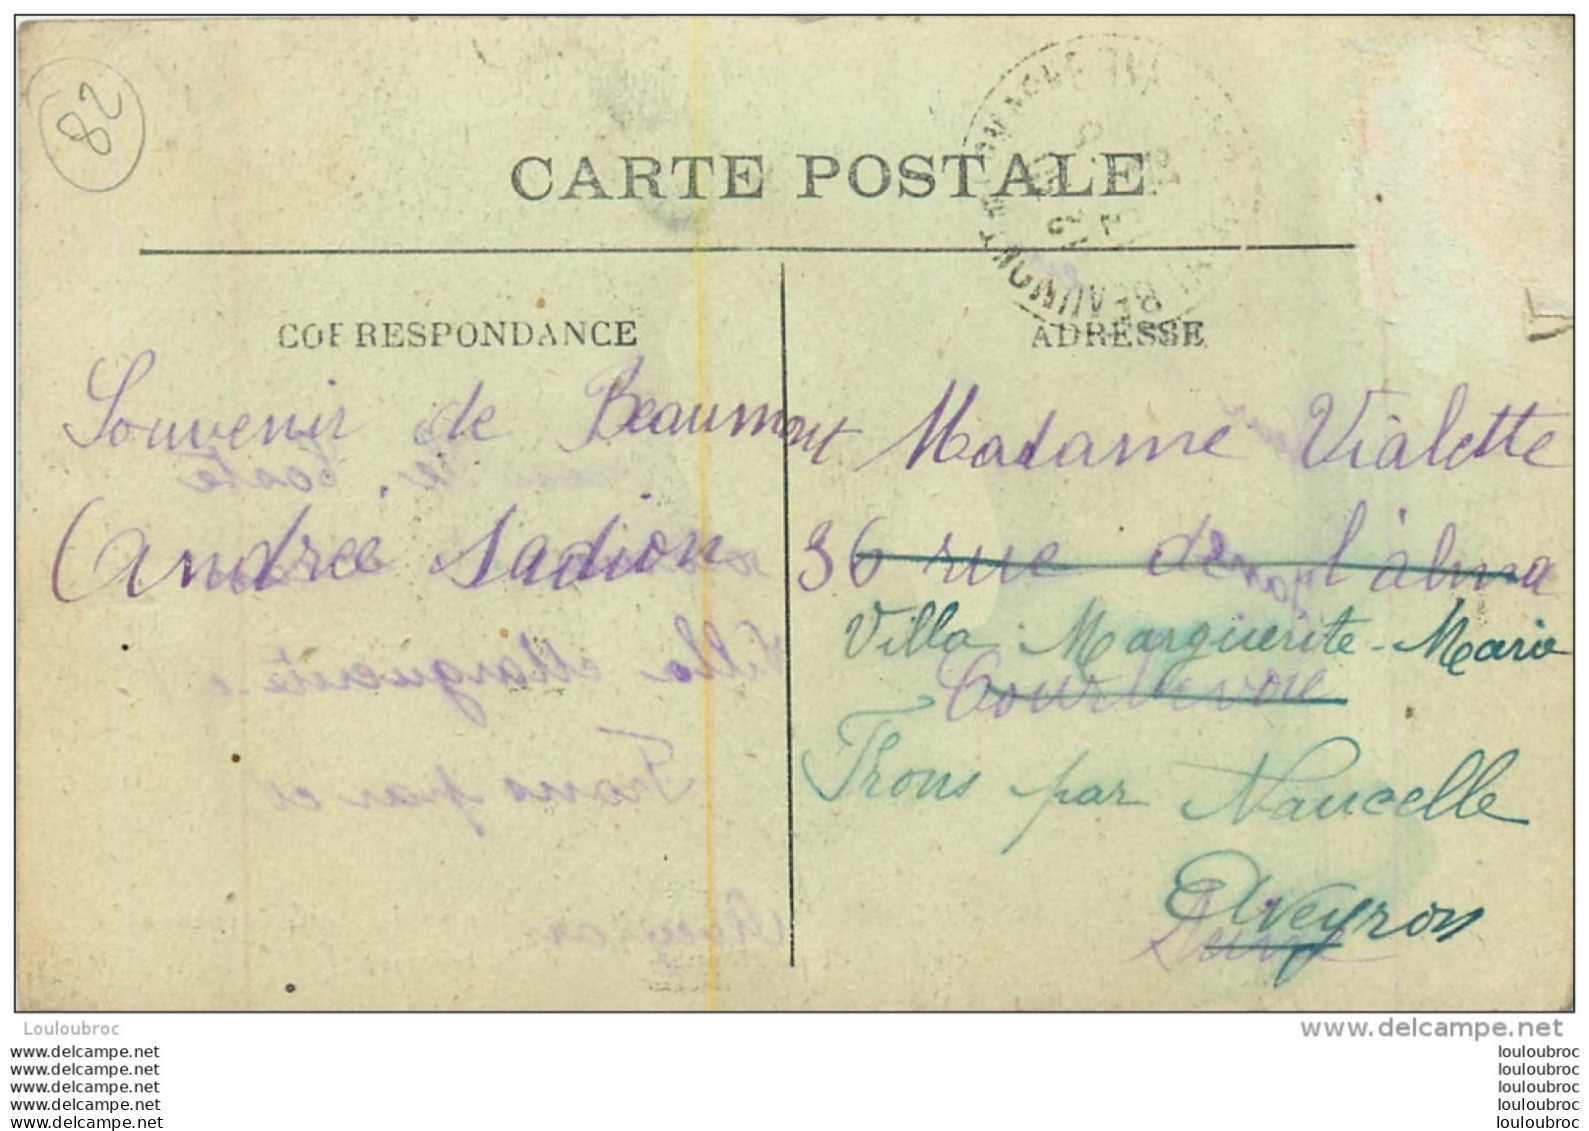 82
CARTE POSTALE
CORRESPONDANCE
Souvenir de Beaumont
Andrée Sadion
ADRESSE
Madame Vialette
36 rue de l'alma
Villa Marguerite-Marie
Courbevoie
Frons par Naucelle
Aveyron
Seine
Louloubroc
www.delcampe.net
www.delcampe.net
www.delcampe.net
www.delcampe.net
www.delcampe.net
www.delcampe.net
louloubroc
louloubroc
louloubroc
louloubroc
louloubroc